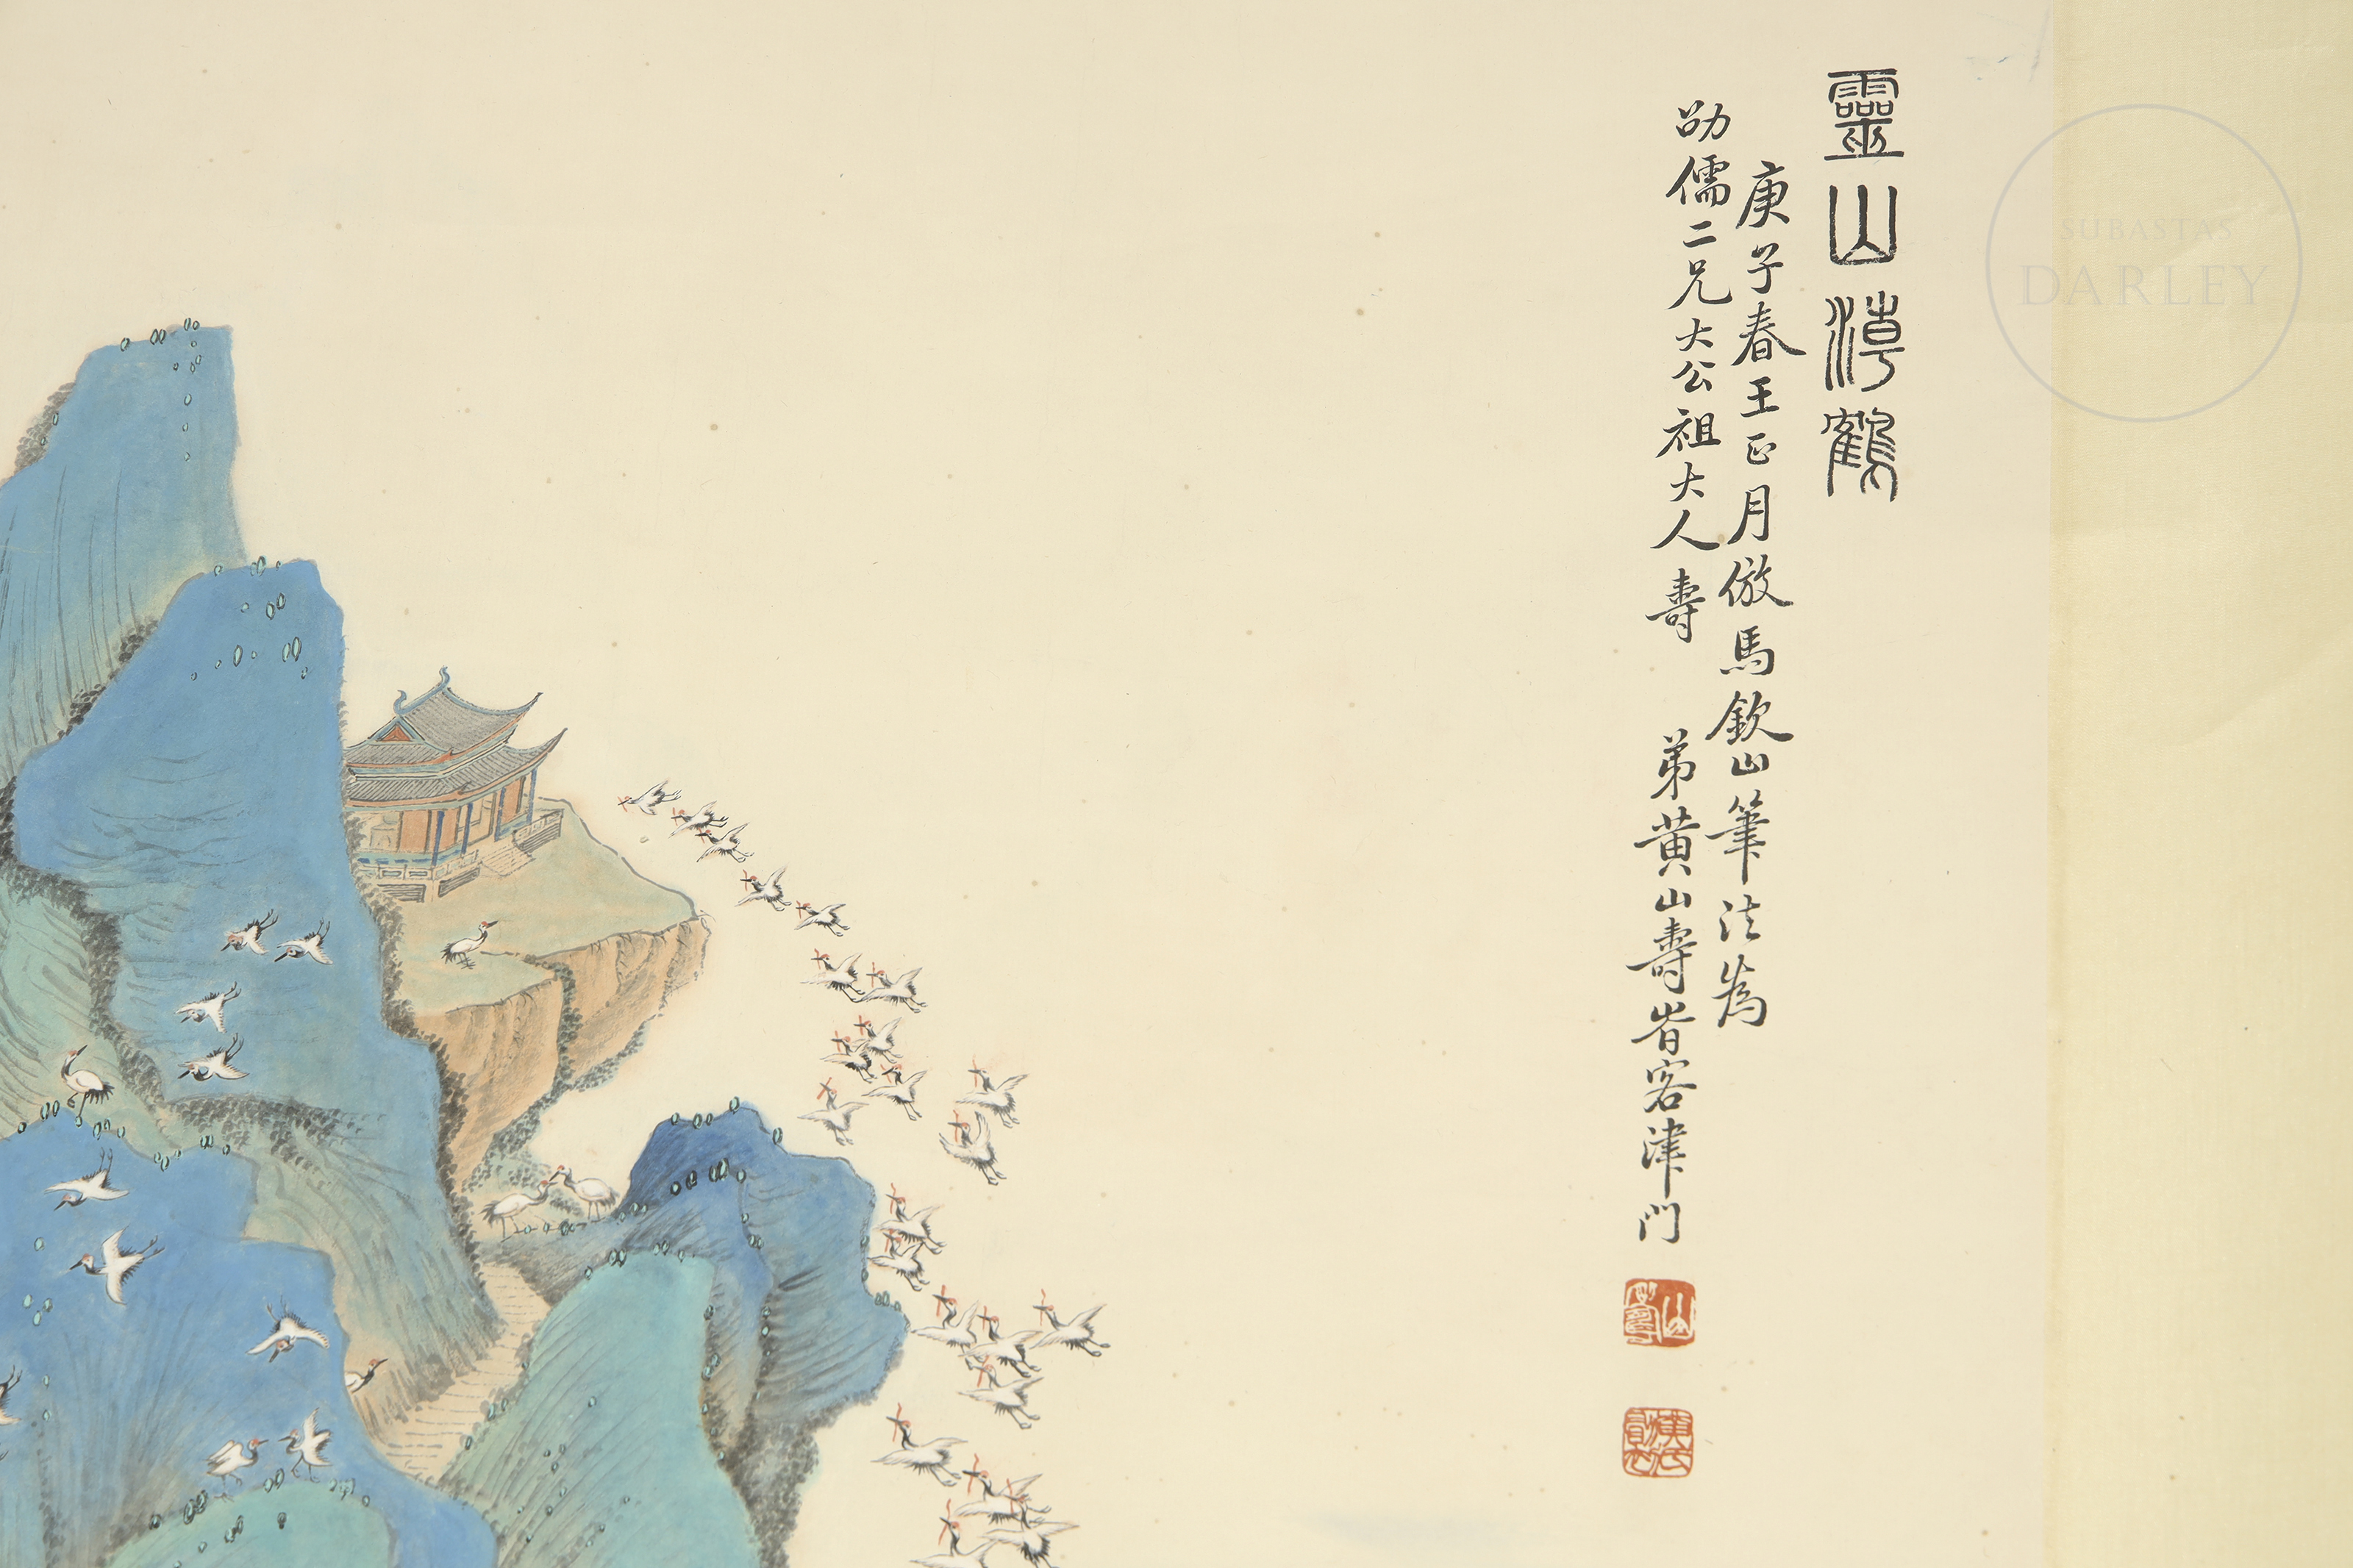 靈山鶴
庚子春王正月倣馬欽山筆法為
劭儒二兄大公祖大人壽 弟黃山壽旹客津門
山壽
SUBASTAS
DARLEY